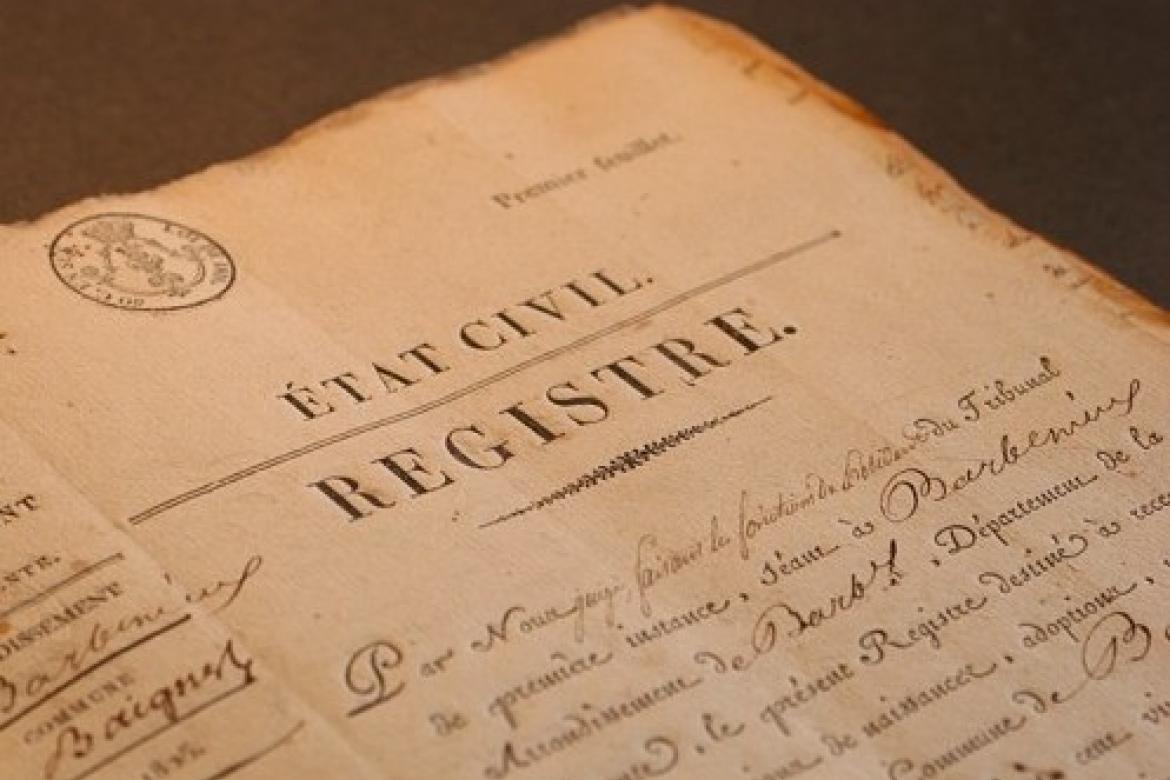 Premier feuillet.
ÉTAT CIVIL.
REGISTRE.
Par Nous juge, faisant les fonctions de du Tribunal
de première instance, séant à Barbezieux
Arrondissement de Barbx, Département de la
, le présent Registre destiné à
de naissances, adoptions,
Commune de
cette
NT
NTE.
DISSEMENT
Barbezieux
COMMUNE
Baignes